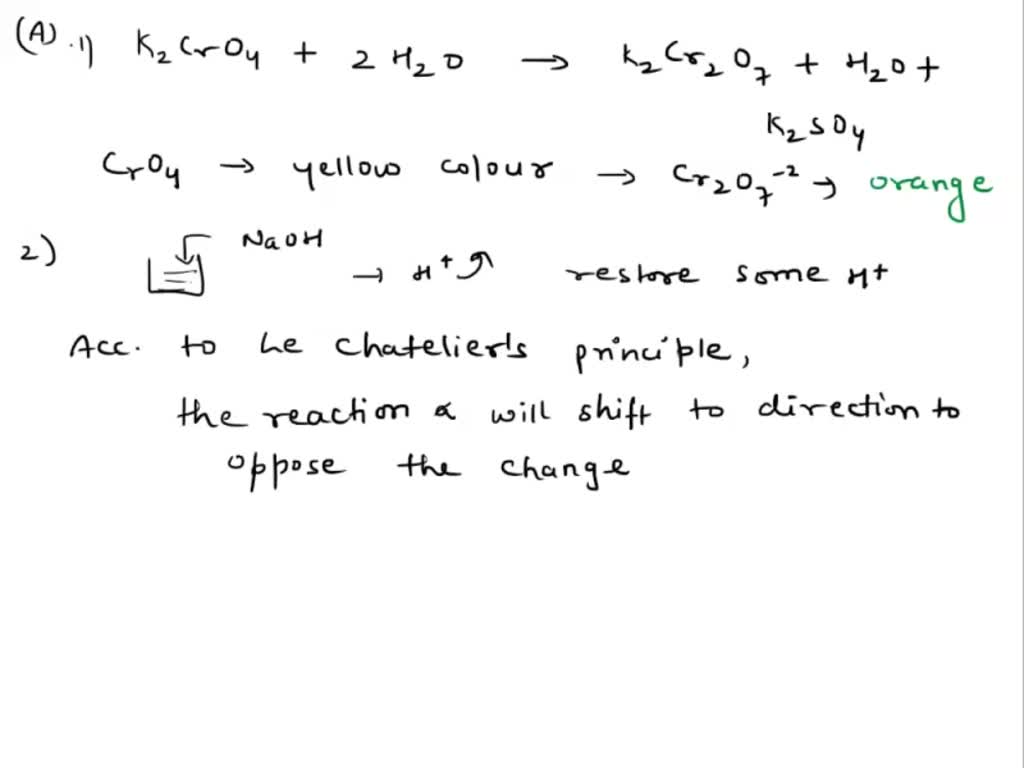 (A) .1) K₂CrO₄ + 2 H₂O → K₂Cr₂O₇ + H₂O +
K₂SO₄
CrO₄ → yellow colour → Cr₂O₇⁻² → orange
2) NaOH → H⁺ restore some H+
Acc. to Le Chatelier's principle,
the reaction will shift to direction to
oppose the change